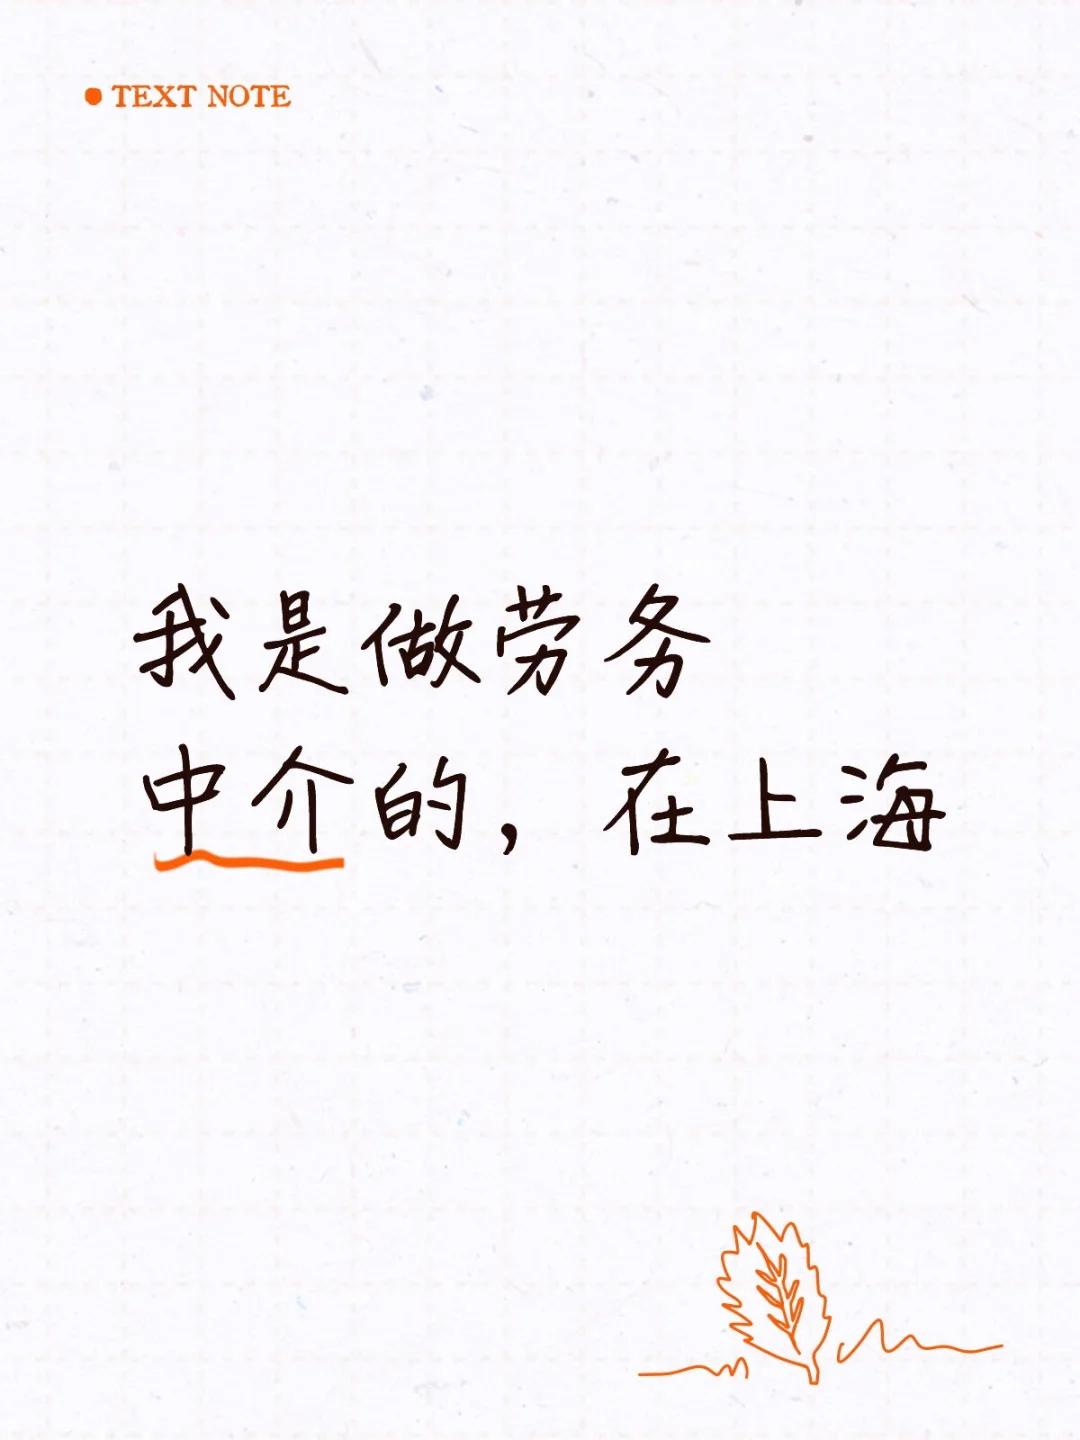 TEXT NOTE
我是做劳务
中介的，在上海